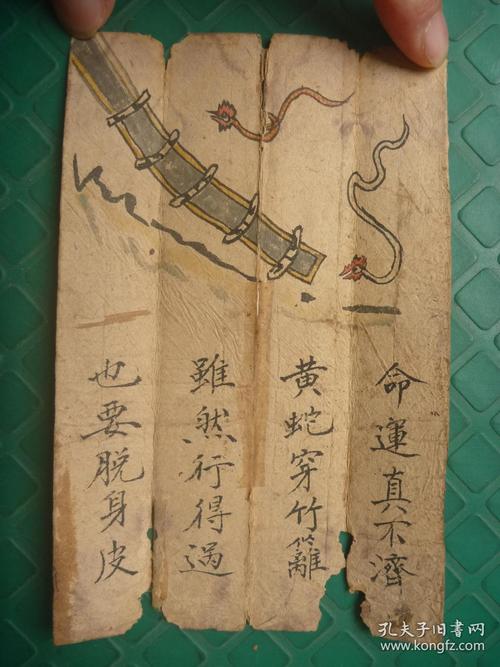 命運真不濟
黄蛇穿竹籬
雖然行得過
也要脱身皮
孔夫子旧書网
www.kongfz.com